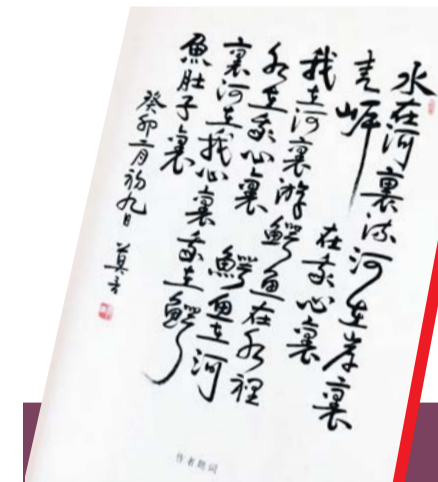 水在河裏流河在岸裏
走岸在我心裏
我在河裏游鱷魚在水裡
水在我心裏鱷魚在河
裏河在我心裏我在鱷
魚肚子裏
癸卯二月初九日 莫言
作者题词